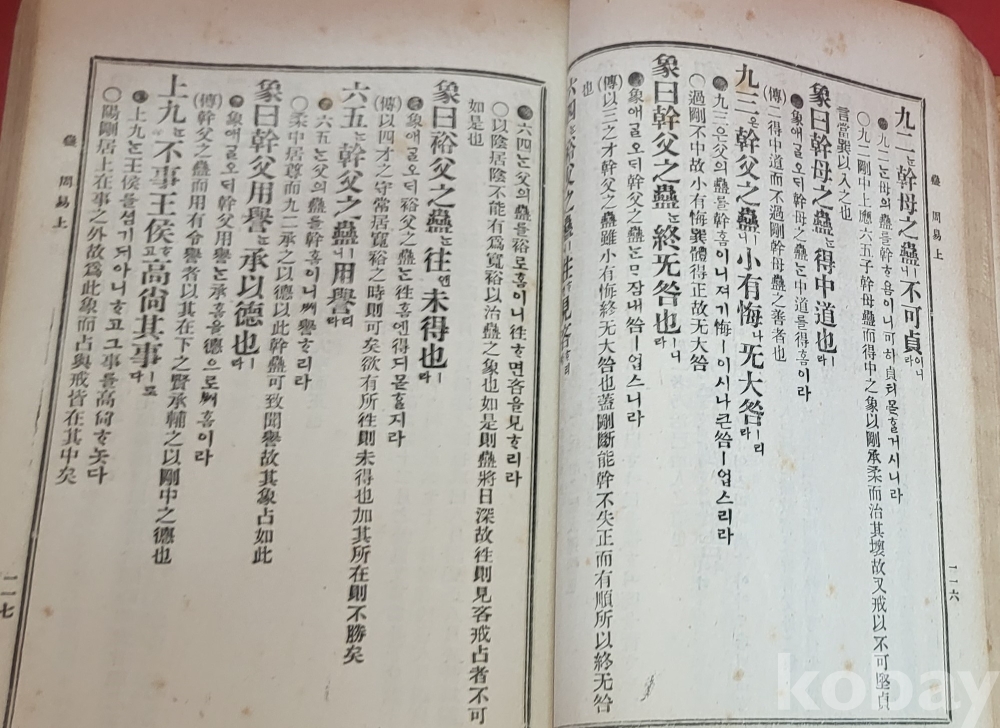 蠱 周易上 一一六
九二는幹母之蠱니不可貞이니라
●九二는母의蠱를幹홈이니可히貞티몯홀거시니라
○九二剛中上應六五子幹母蠱而得中之象以剛承柔而治其壞故又戒以不可堅貞
言當巽以入之也
象曰幹母之蠱는得中道也라
●象애ᄀᆞᆯ오ᄃᆡ幹母之蠱는中道를得홈이라
(傳)二得中道而不過剛幹母蠱之善者也
九三은幹父之蠱니小有悔나无大咎ㅣ리라
●九三은父의蠱를幹홈이니져기悔ㅣ이시나큰咎ㅣ업스리라
○過剛不中故小有悔巽體得正故无大咎
象曰幹父之蠱는終无咎也ㅣ니라
●象애ᄀᆞᆯ오ᄃᆡ幹父之蠱는ᄆᆞᄎᆞᆷ내咎ㅣ업스니라
(傳)以三之才幹父之蠱雖小有悔終无大咎也蓋剛斷能幹不失正而有順所以終无咎
也
六四는裕父之蠱니往ᄒᆞ면見吝ᄒᆞ리라
●六四는父의蠱를裕로홈이니往ᄒᆞ면吝을見ᄒᆞ리라
○以陰居陰不能有爲寬裕以治蠱之象也如是則蠱將日深故往則見吝戒占者不可
如是也
象曰裕父之蠱는往앤未得也라
●象애ᄀᆞᆯ오ᄃᆡ裕父之蠱는往홈엔得디몯ᄒᆞᆯ지라
(傳)以四之才守常居寬裕之時則可矣欲有所往則未得也加其所任則不勝矣
六五는幹父之蠱니用譽리라
●六五는父의蠱를幹홈이니ᄡᅥ譽ᄒᆞ리라
○柔中居尊而九二承之以德以此幹蠱可致聞譽故其象占如此
象曰幹父用譽는承以德也라
●象애ᄀᆞᆯ오ᄃᆡ幹父用譽는承홈을德으로ᄡᅥ홈이라
(傳)幹父之蠱而用有令譽者以其在下之賢承輔之以剛中之德也
上九는不事王侯ᄒᆞ고高尙其事ㅣ로다
●上九는王侯를셤기디아니ᄒᆞ고그事를高尙ᄒᆞ놋다
○陽剛居上在事之外故爲此象而占與戒皆在其中矣
蠱 周易上 一一七
kobay